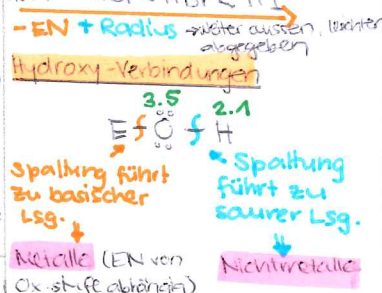 - EN + Radius → weiter aussen, leichter
abgegeben
Hydroxy-Verbindungen
3.5 2.1
E O H
Spaltung führt
zu basischer
Lsg.
Spaltung
führt zu
saurer Lsg.
Metalle (EN von
Ox.stufe abhängig)
Nichtmetalle